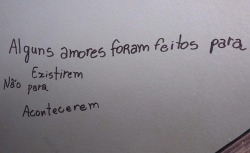 Alguns amores foram feitos para
Existirem
Não para
Acontecerem